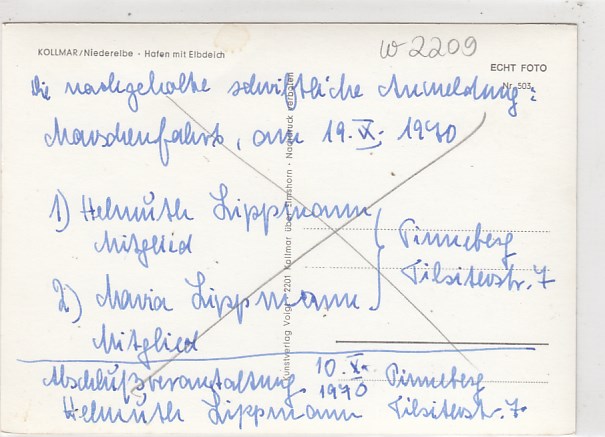 W 2209
KOLLMAR/Niederelbe - Hafen mit Elbdeich
ECHT FOTO
Nr. 503
Die nachgeholte schriftliche Anmeldung:
Marschenfahrt, am 19. X. 1970
1) Helmuth Lippmann
Mitglied
2) Maria Lippmann
Mitglied
Pinneberg
Tilsiterstr. 7
Abschlußveranstaltung 10. X. 1970
Helmuth Lippmann
Pinneberg
Tilsiterstr. 7
Kunstverlag Voigt · 2201 Kollmar über Elmshorn · Nachdruck verboten